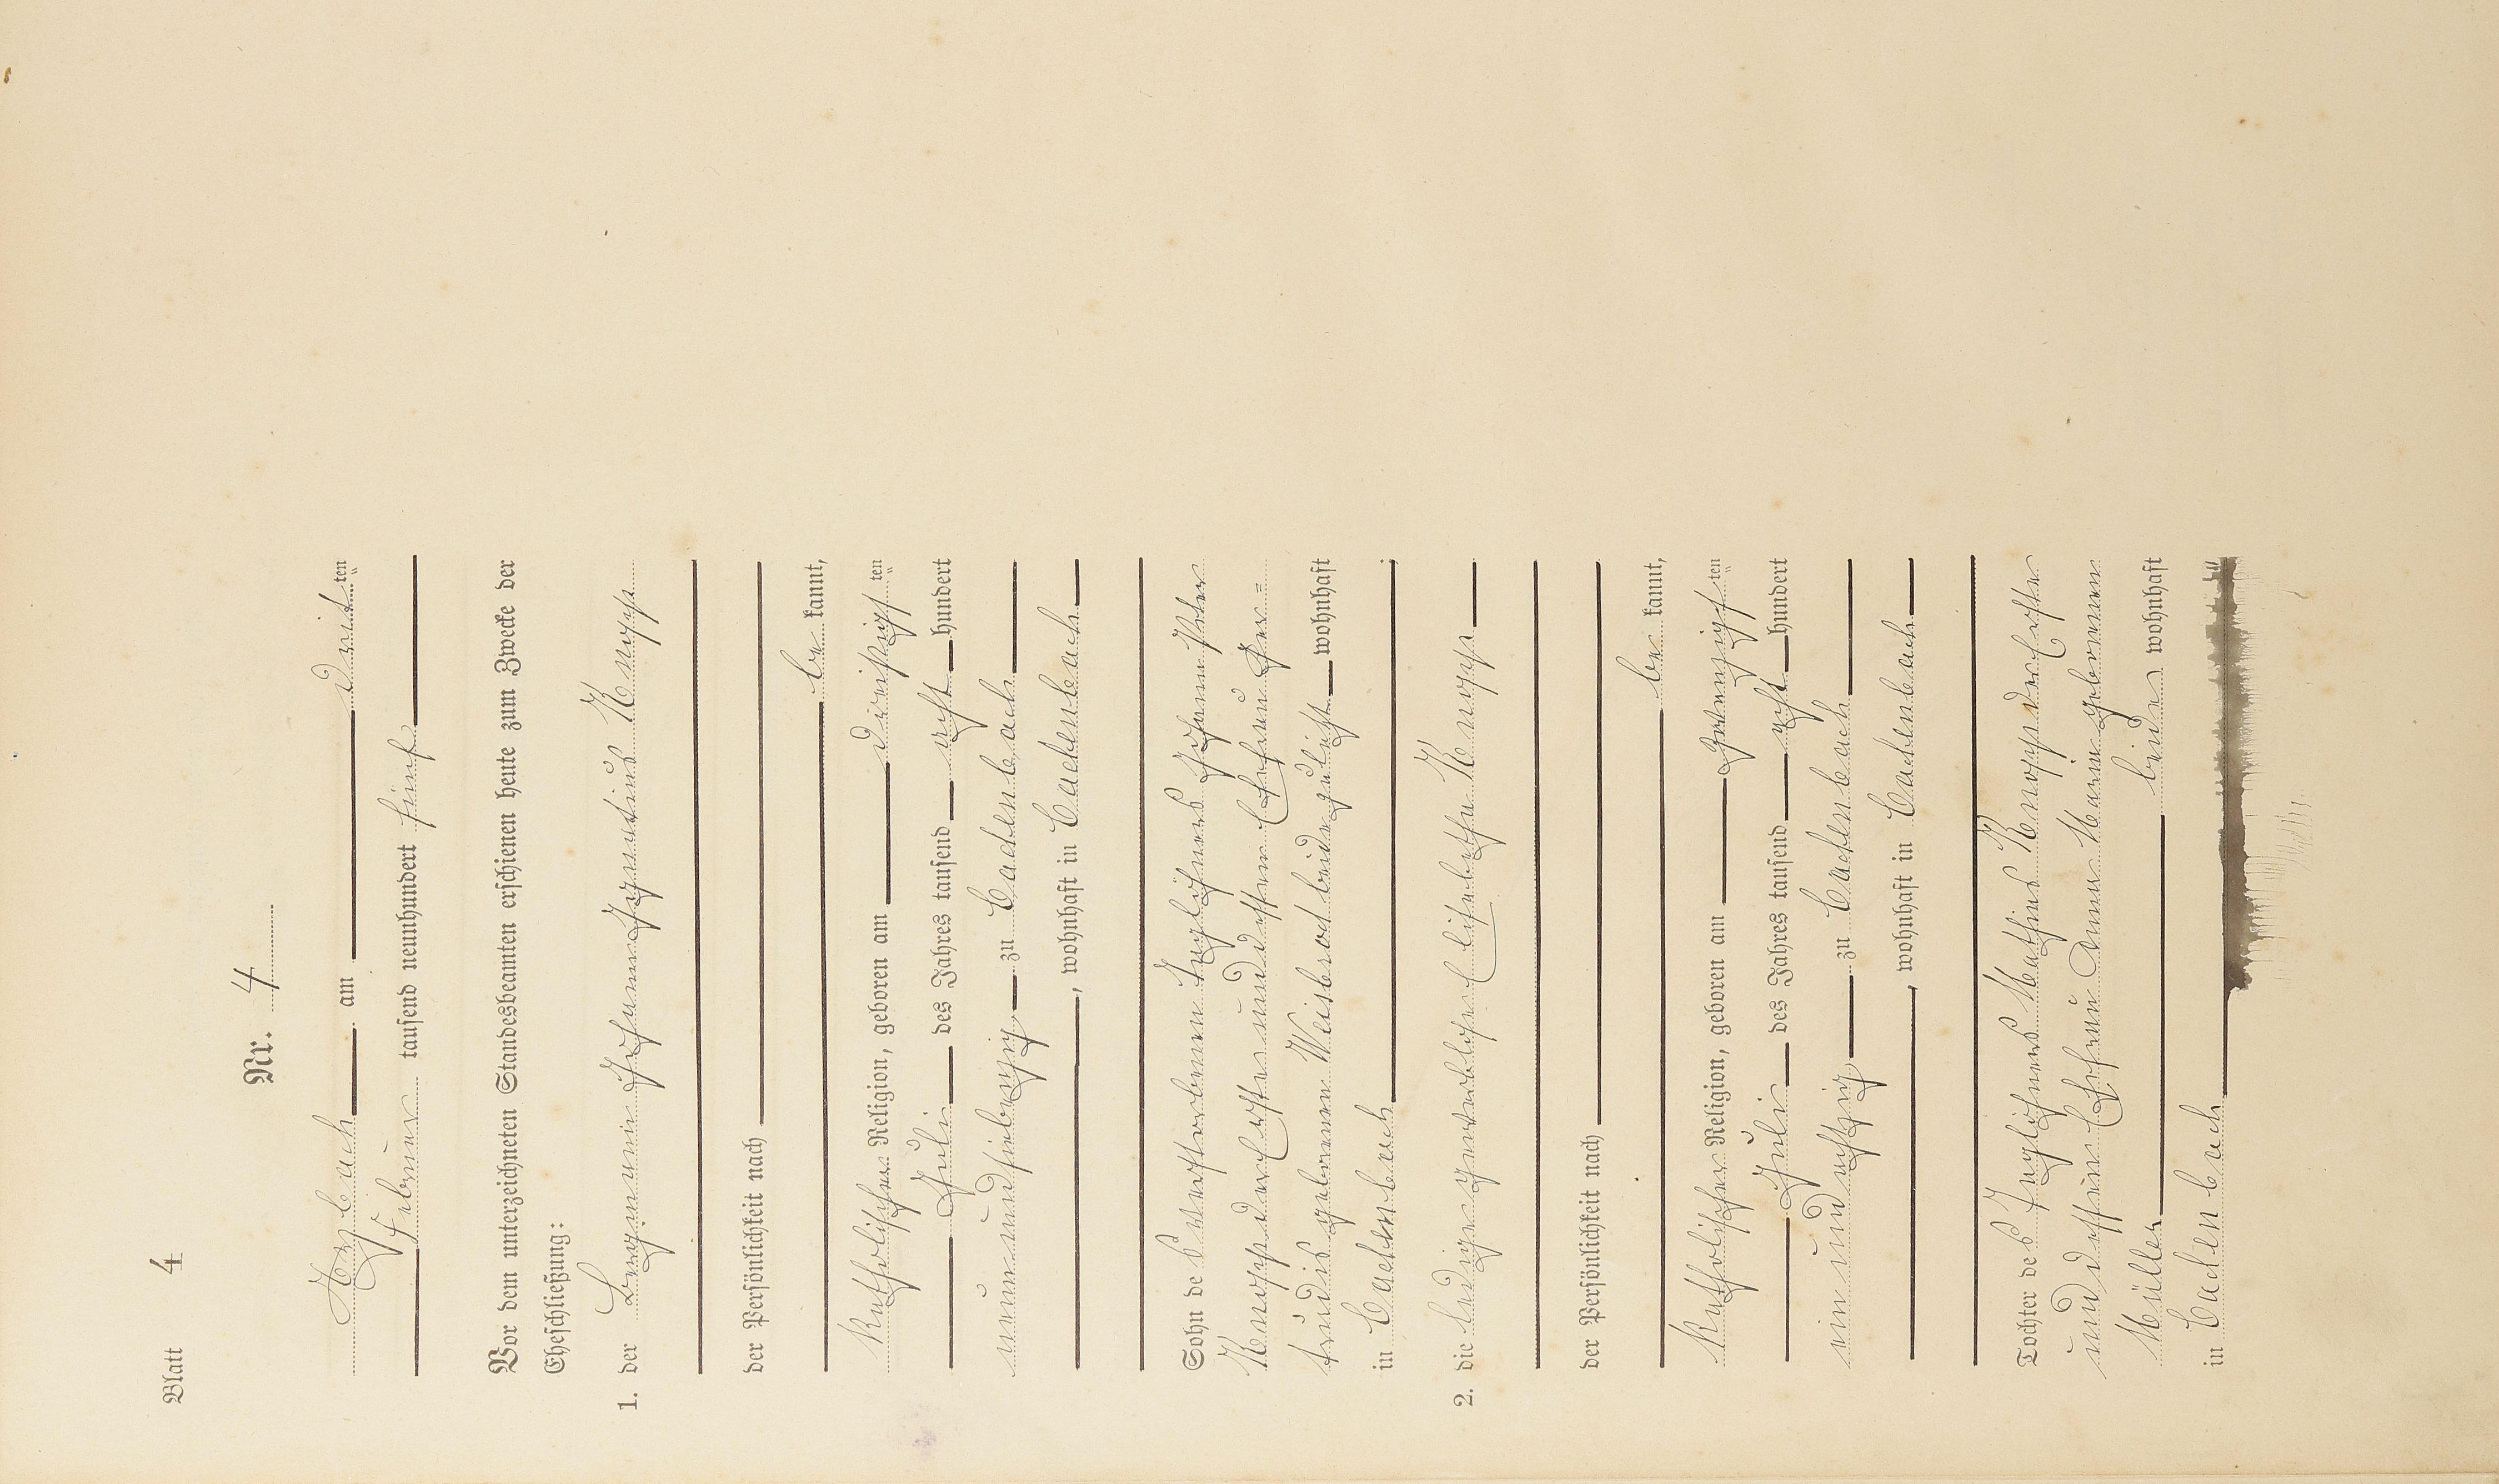 Blatt 4
Nr. 4
Herbach am drit ten
Februar tausend neunhundert fünf
Vor dem unterzeichneten Standesbeamten erschienen heute zum Zwecke der
Eheschließung:
1. der Bergmann Johann Ignatius Knopp
der Persönlichkeit nach
be kannt,
katholischer Religion, geboren am dreißigst ten
Juli des Jahres tausend acht hundert
neunundsiebenzig zu Cachenbach
, wohnhaft in Cachenbach
Sohn de s verstorbenen Taglöhners Johann Peter
Knopp der Erste und dessen Ehefrau Ger=
trudis geborenen Weisbrod beide zuletzt wohnhaft
in Cachenbach
2. die ledige gewerblose Elisabetha Knopp
der Persönlichkeit nach
be kannt,
katholischer Religion, geboren am zwanzigst ten
Juli des Jahres tausend acht hundert
ein und achtzig zu Cachenbach
, wohnhaft in Cachenbach
Tochter des Taglöhners Mathias Knopp der Erste
und dessen Ehefrau Anna Maria geborenen
Müller beide wohnhaft
in Cachenbach